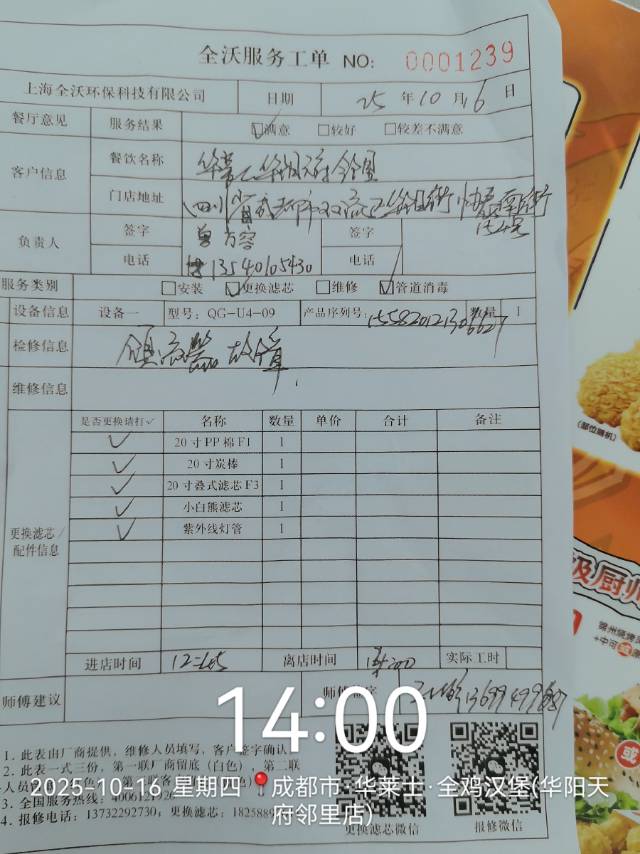 全沃服务工单 NO: 0001239
上海全沃环保科技有限公司 日期 25 年 10 月 6 日
餐厅意见 服务结果 ☑满意 □较好 □较差不满意
客户信息 餐饮名称 华莱士华阳天府邻里
门店地址 四川省成都市双流区华阳街
负责人 签字 曾方容 签字
电话 13540105430 电话
服务类别 □安装 ☑更换滤芯 □维修 ☑管道消毒
设备信息 设备一 型号: QG-U4-09 产品序列号: 数量 1
检修信息
维修信息
更换滤芯/配件信息
是否更换请打✓ 名称 数量 单价 合计 备注
✓ 20寸PP棉F1 1
✓ 20寸炭棒 1
✓ 20寸叠式滤芯F3 1
✓ 小白熊滤芯 1
✓ 紫外线灯管 1
进店时间 离店时间 实际工时
师傅建议 师傅签字
14:00
1. 此表由厂商提供，维修人员填写，客户签字确认
2. 此表一式三份，第一联厂商留底（白色），第二联
3. 全国服务热线:
4. 报修电话: 13732292730, 更换滤芯:
2025-10-16 星期四 成都市·华莱士·全鸡汉堡(华阳天
府邻里店)
更换滤芯微信 报修微信
(部位随机)
级厨师
+中可 或
或